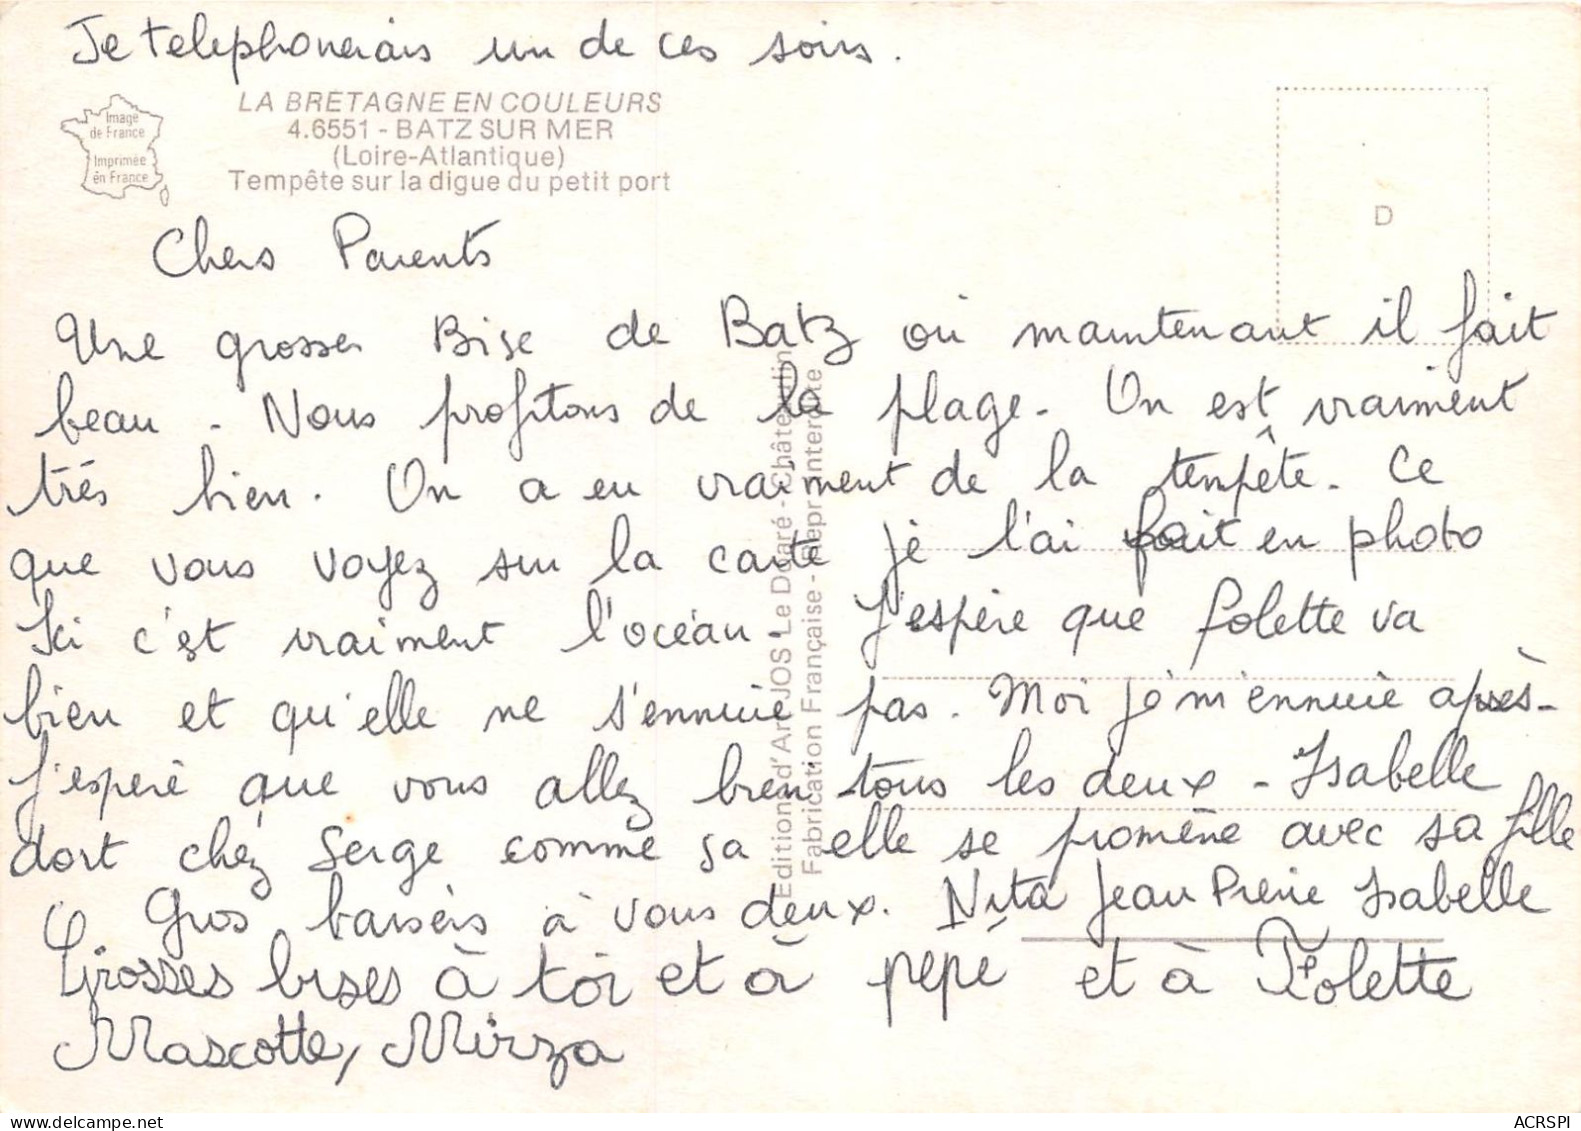 Je telephonerais un de ces soirs.
Image
de France
Imprimée
en France
LA BRETAGNE EN COULEURS
4.6551 - BATZ SUR MER
(Loire-Atlantique)
Tempête sur la digue du petit port
D
Chers Parents
Une grosse Bise de Batz où maintenant il fait
beau - Nous profitons de la plage. On est vraiment
trés bien. On a eu vraiment de la tempête. Ce
que vous voyez sur la carte je l'ai fait en photo
Ici c'est vraiment l'océan. J'espère que folette va
bien et qu'elle ne s'ennuie pas. Moi je m'ennuie après-
J'espère que vous allez bien tous les deux - Isabelle
dort chez Serge comme sa elle se promène avec sa fille
Gros baisers à vous deux. Nita Jean Pierre Isabelle
Grosses bises à toi et à pépé et à Folette
Mascotte, Mirza
Edition d'Art JOS Le Doaré - Châteaulin
Fabrication Française - Repr. interdite
ACRSPI